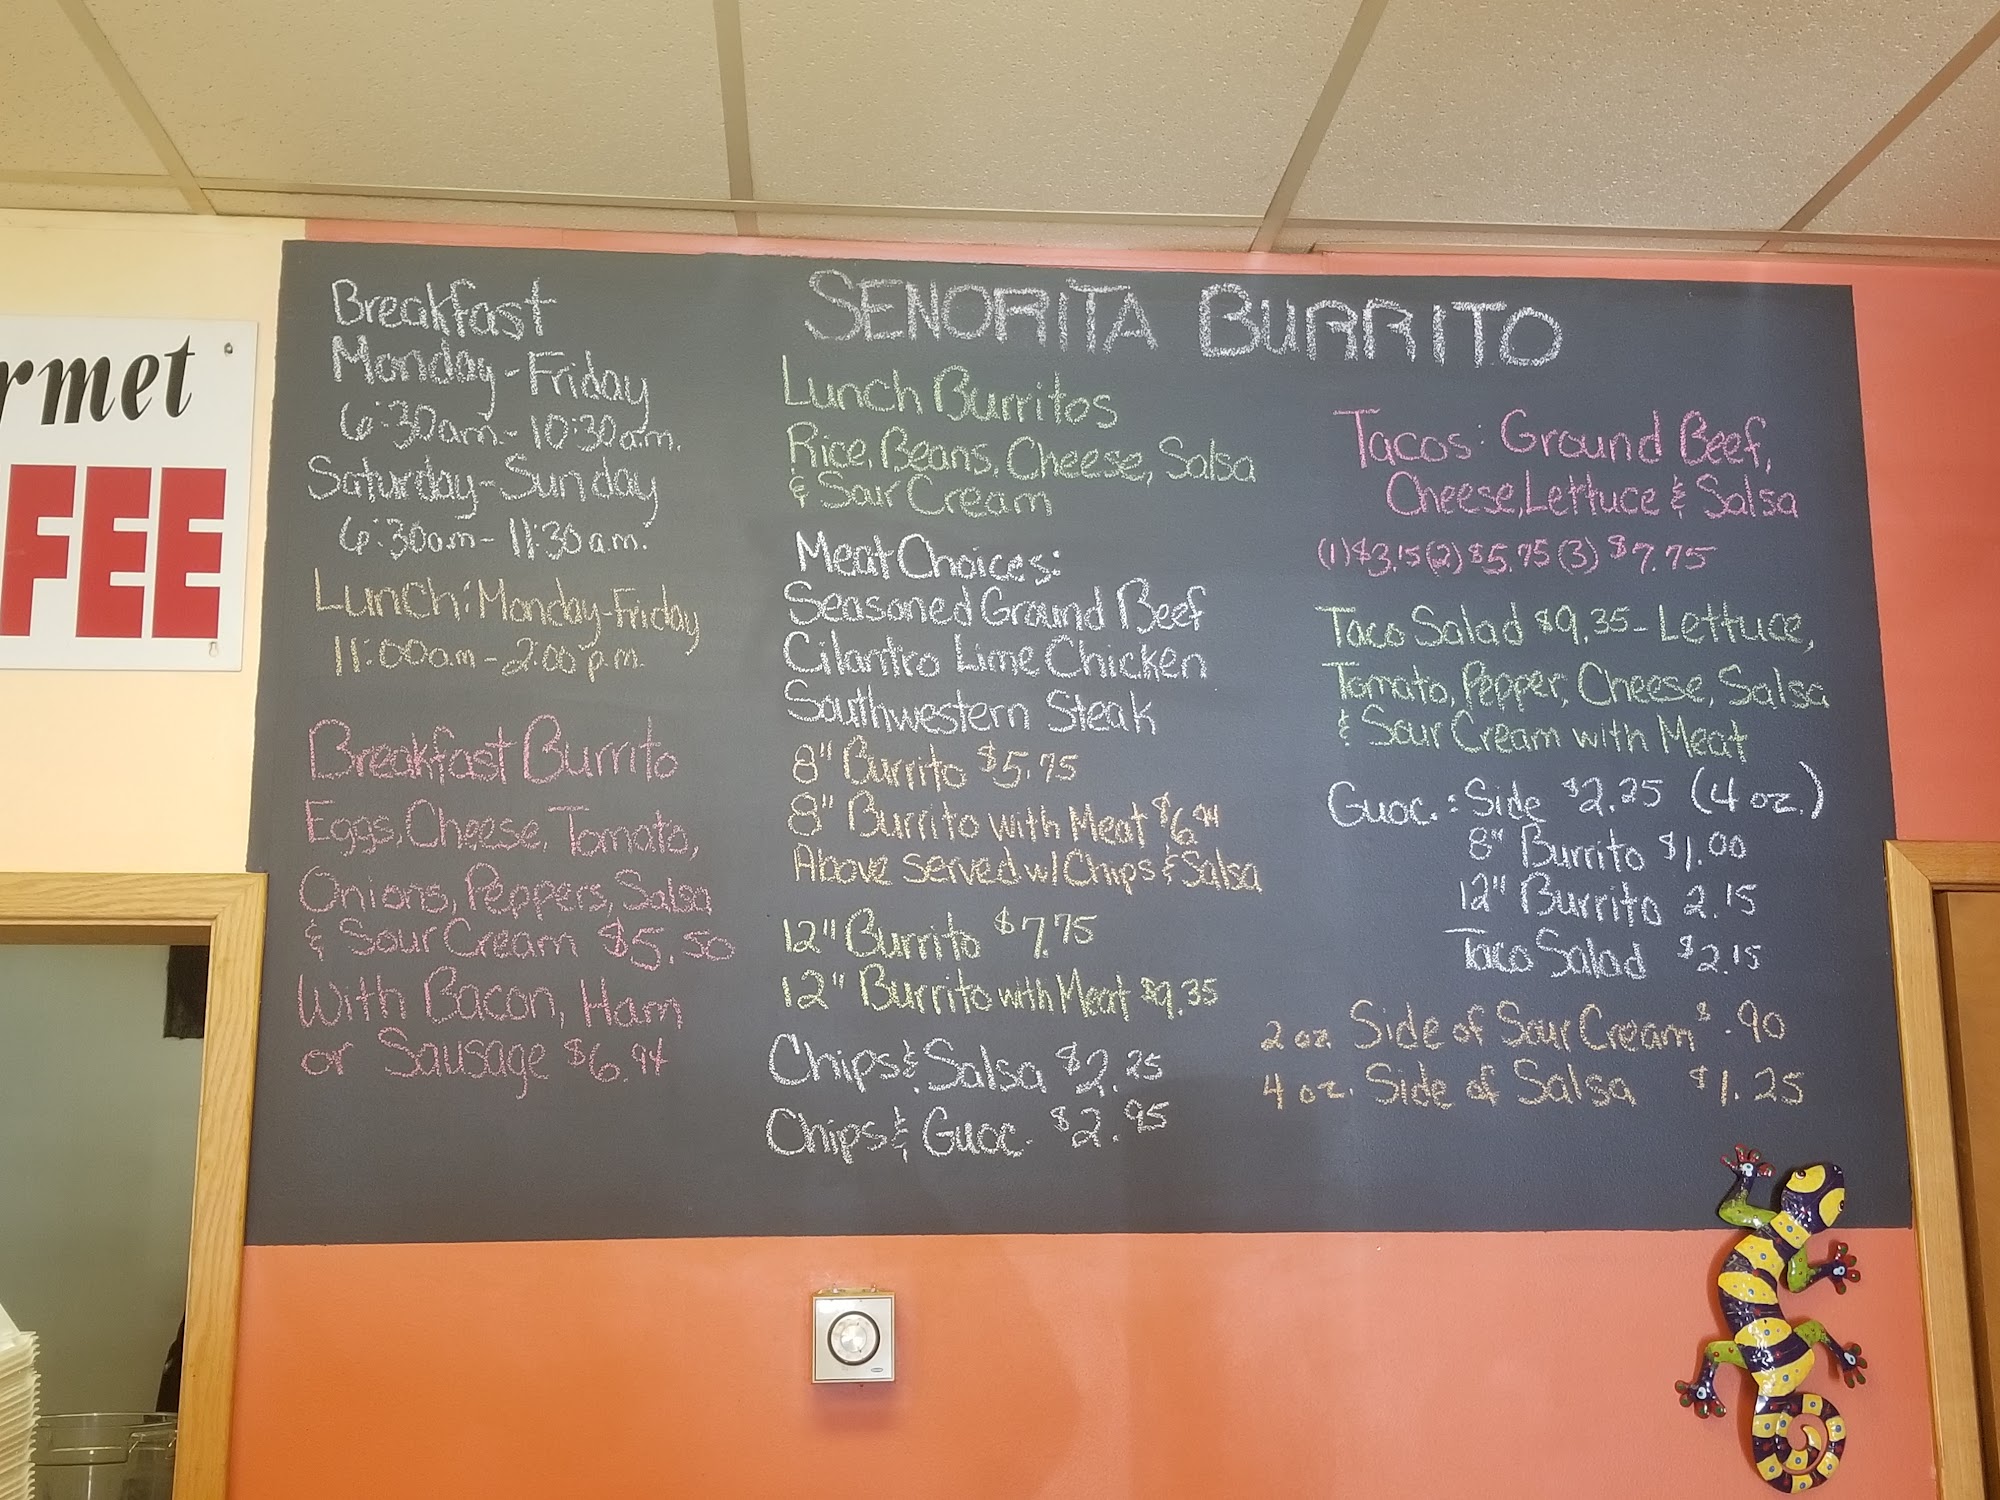 rmet
FEE
SENORITA BURRITO
Breakfast
Monday-Friday
6:30am-10:30a.m.
Saturday-Sunday
6:30am-11:30a.m.
Lunch: Monday-Friday
11:00am-2:00p.m.
Breakfast Burrito
Eggs, Cheese, Tomato,
Onions, Peppers, Salsa
& Sour Cream $5.50
With Bacon, Ham
or Sausage $6.94
Lunch Burritos
Rice, Beans, Cheese, Salsa
& Sour Cream
Meat Choices:
Seasoned Ground Beef
Cilantro Lime Chicken
Southwestern Steak
8" Burrito $5.75
8" Burrito with Meat $6.94
Above served w/ Chips & Salsa
12" Burrito $7.75
12" Burrito with Meat $9.35
Chips & Salsa $2.25
Chips & Guac. $2.95
Tacos: Ground Beef,
Cheese, Lettuce & Salsa
(1) $3.15 (2) $5.75 (3) $7.75
Taco Salad $9.35 - Lettuce,
Tomato, Pepper, Cheese, Salsa
& Sour Cream with Meat
Guac.: Side $2.25 (4 oz.)
8" Burrito $1.00
12" Burrito 2.15
Taco Salad $2.15
2 oz. Side of Sour Cream $.90
4 oz. Side of Salsa $1.25